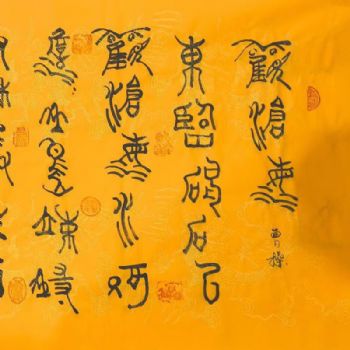 觀滄海
曹操
東臨碣石以
觀滄海水何
澹澹山島竦峙